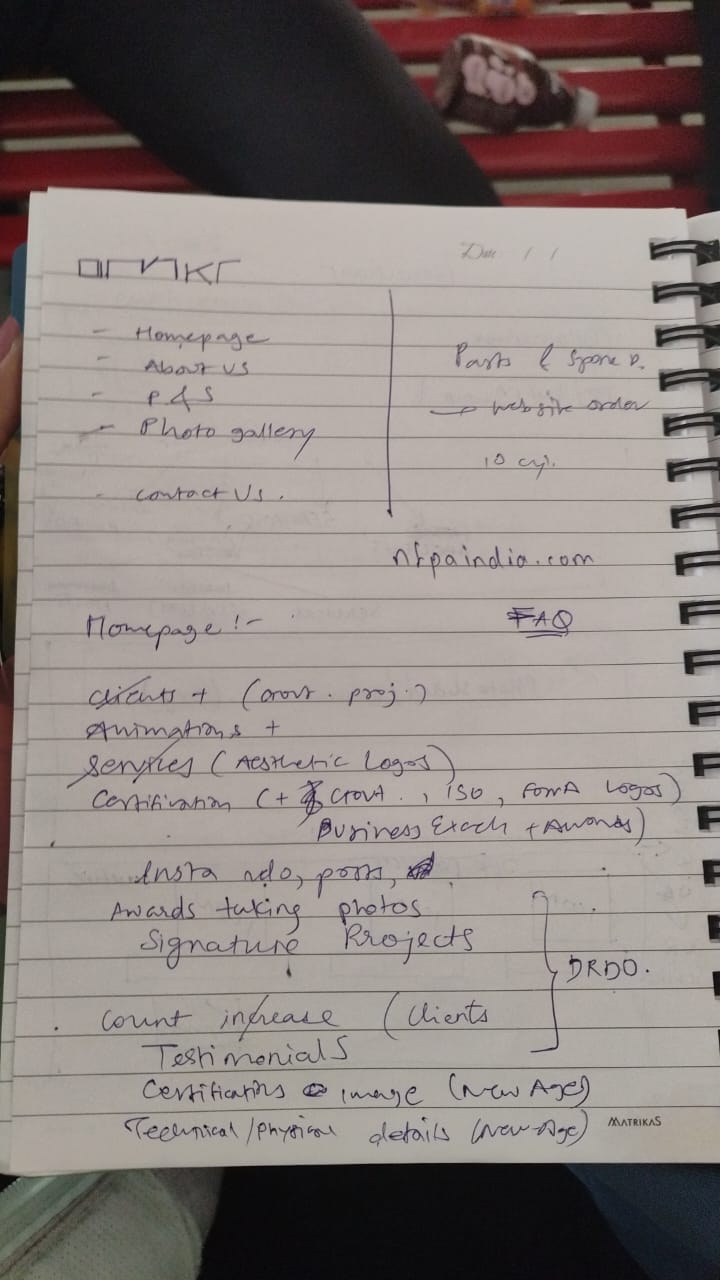 Date / /
- Homepage
- About Us
- P & S
- Photo gallery
- contact Us.
Parts & Spare
→ website order
10
nfpaindia.com
FAQ
Homepage :-
clients + (Govt. proj.)
Animations +
Services (Aesthetic Logos)
Certification (+ Govt., ISO, Logos)
Business + Awards)
Insta posts,
Awards taking photos
Signature Projects
DRDO.
Count increase (Clients
Testimonials
Certifications image (New Age)
Technical/physical details (New-Age)
MATRIKAS